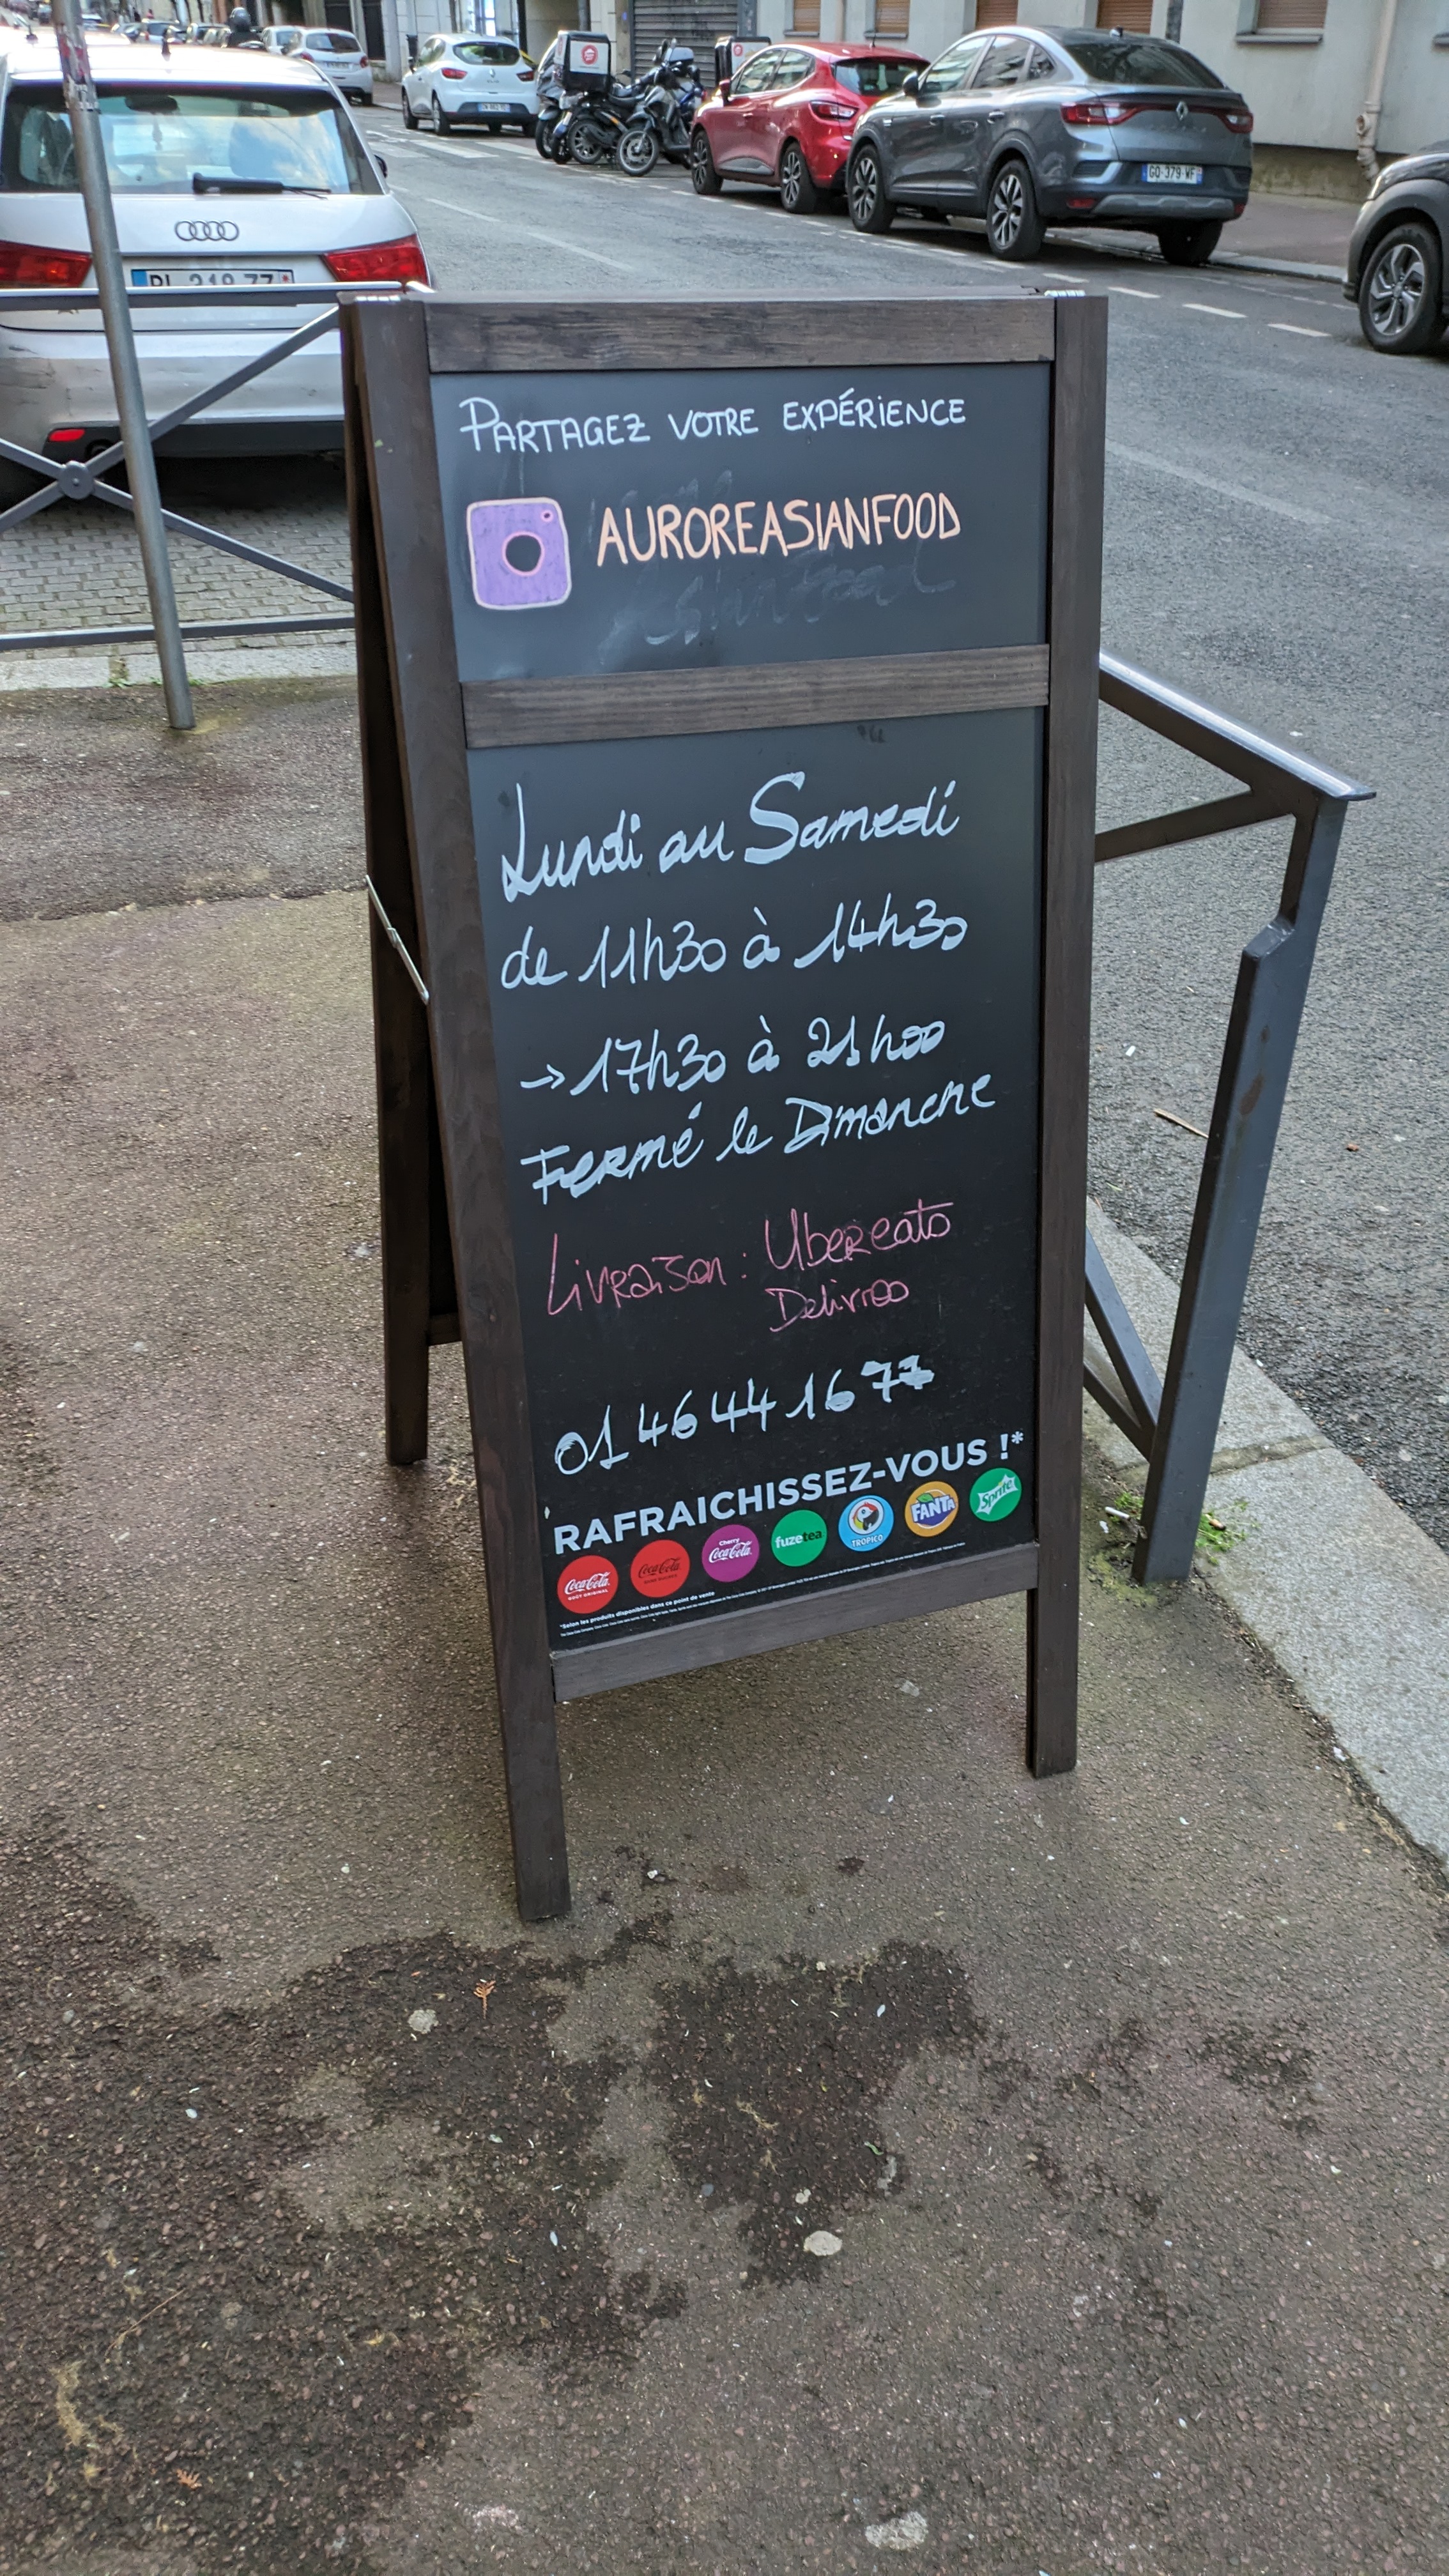 GQ-379-WF
PARTAGEZ VOTRE EXPÉRIENCE
AUROREASIANFOOD
Lundi au Samedi
de 11h30 à 14h30
→ 17h30 à 21h00
Fermé le Dimanche
Livraison : Ubereats
Deliveroo
01 46 44 16 77
RAFRAICHISSEZ-VOUS !*
Coca-Cola GOÛT ORIGINAL
Coca-Cola SANS SUCRES
Cherry Coca-Cola
fuzetea
TROPICO
FANTA
Sprite
*Selon les produits disponibles dans ce point de vente